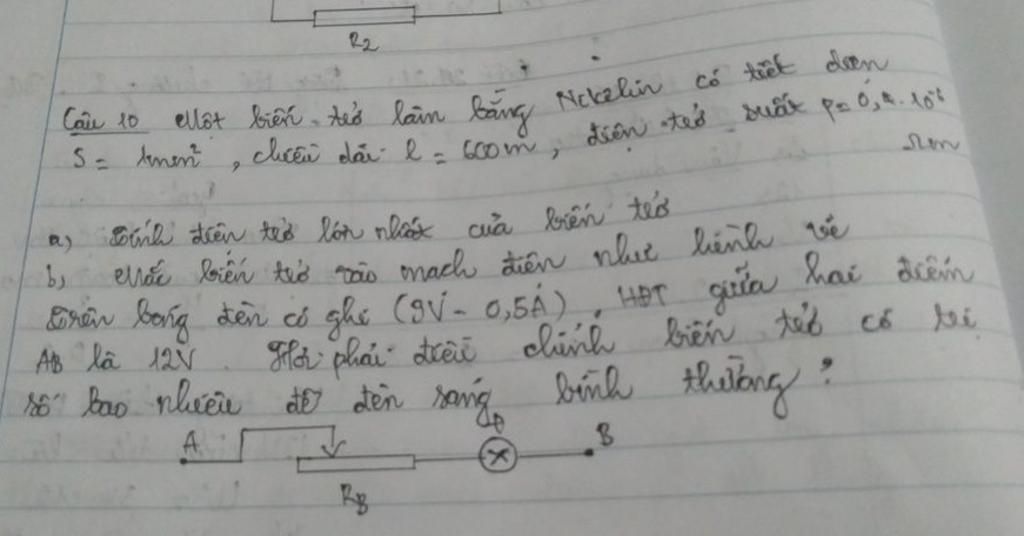 R2
Câu 10 Một biến trở làm bằng Nckelin có tiết diện
S = 1mm², chiều dài l = 600m, điện trở suất ρ = 0,4.10⁻⁶
Ωm
a, Tính điện trở lớn nhất của biến trở
b, Mắc biến trở vào mạch điện như hình vẽ
Trên bóng đèn có ghi (9V - 0,5A), HĐT giữa hai điểm
AB là 12V. Hỏi phải điều chỉnh biến trở có trị
số bao nhiêu để đèn sáng bình thường?
A
Đ
B
RB